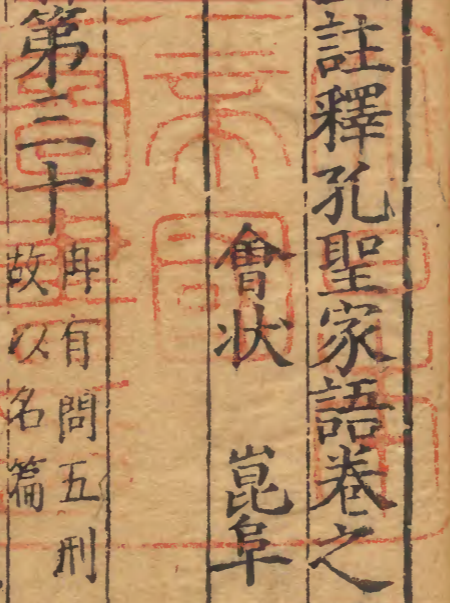 註釋孔聖家語卷之
會狀 崑阜
第三十
冉有問五刑
故以名篇